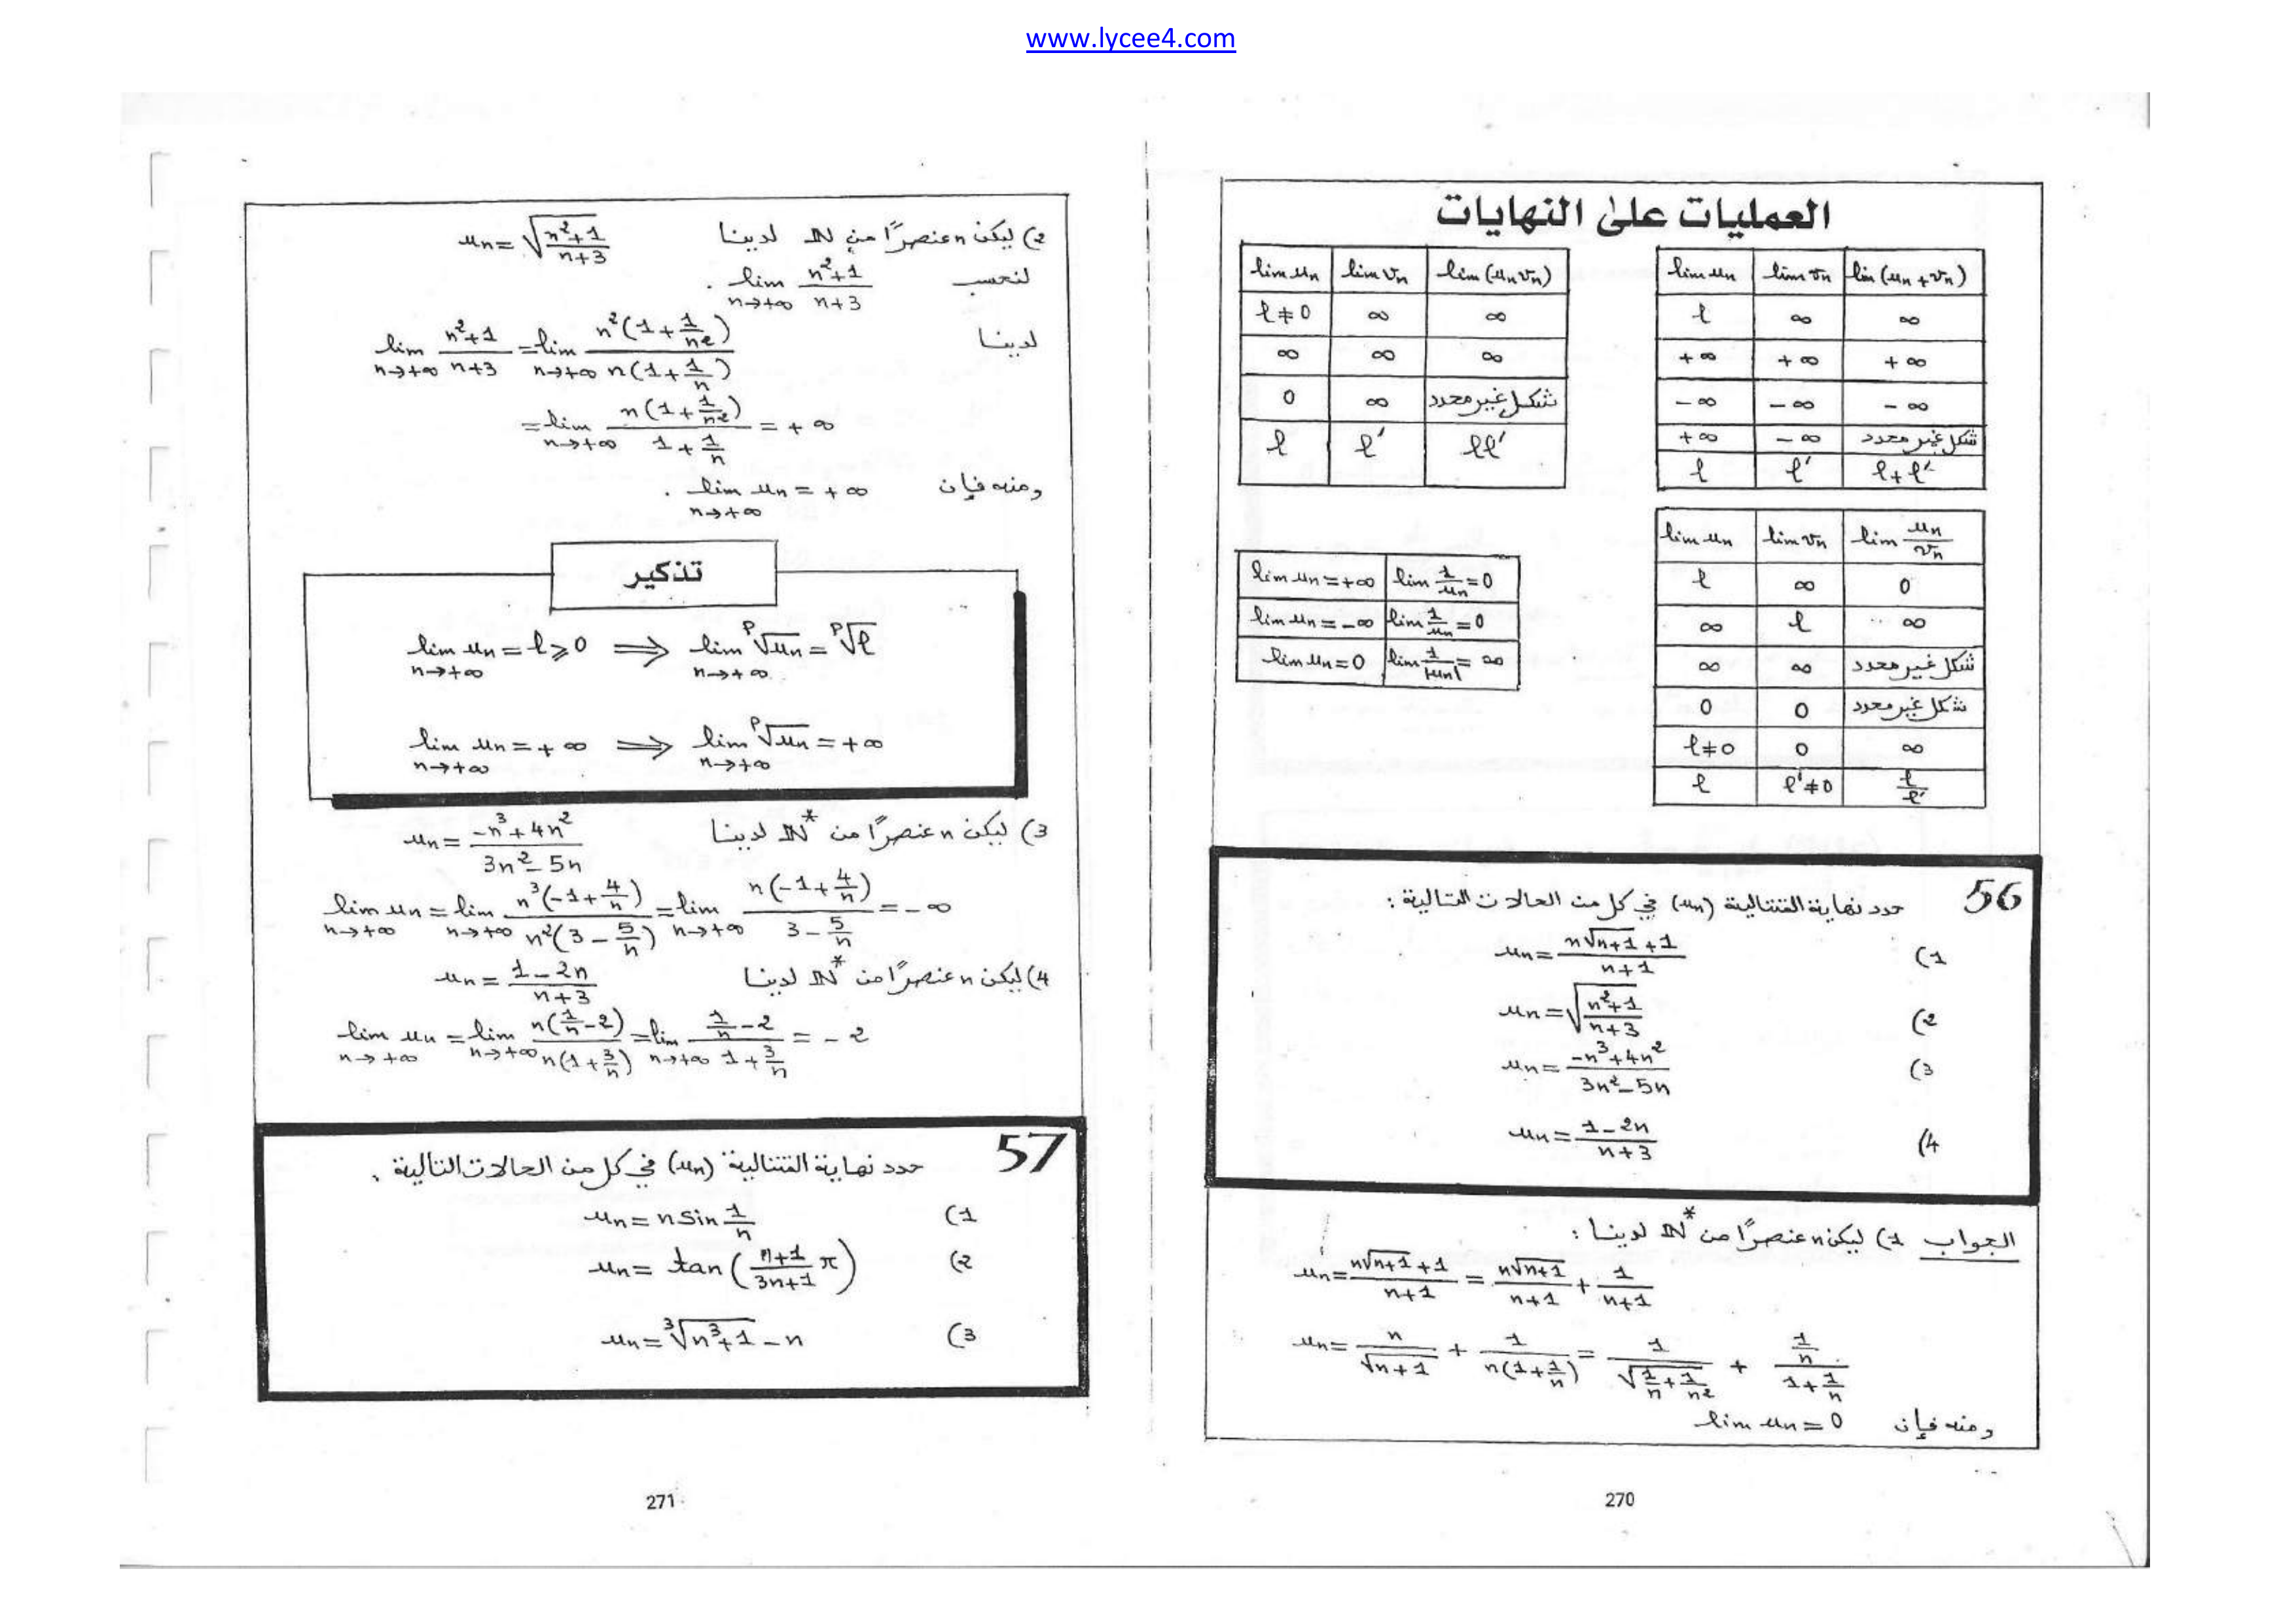 www.lycee4.com
العمليات على النهايات
lim un | lim vn | lim (un + vn)
ℓ | ∞ | ∞
+∞ | +∞ | +∞
−∞ | −∞ | −∞
+∞ | −∞ | شكل غير محدد
ℓ | ℓ' | ℓ+ℓ'
lim un | lim vn | lim (un vn)
ℓ≠0 | ∞ | ∞
∞ | ∞ | ∞
0 | ∞ | شكل غير محدد
ℓ | ℓ' | ℓℓ'
lim un | lim vn | lim un/vn
ℓ | ∞ | 0
∞ | ℓ | ∞
∞ | ∞ | شكل غير محدد
0 | 0 | شكل غير محدد
ℓ≠0 | 0 | ∞
ℓ | ℓ'≠0 | ℓ/ℓ'
lim un = +∞ | lim 1/un = 0
lim un = −∞ | lim 1/un = 0
lim un = 0 | lim 1/|un| = ∞
56 حدد نهاية المتتالية (un) في كل من الحالات التالية :
(1 un = (n√(n+1) + 1)/(n+1)
(2 un = √((n²+1)/(n+3))
(3 un = (−n³+4n²)/(3n²−5n)
(4 un = (1−2n)/(n+3)
الجواب 1) ليكن n عنصرًا من ℕ* لدينا :
un = (n√(n+1) + 1)/(n+1) = n√(n+1)/(n+1) + 1/(n+1)
un = n/√(n+1) + 1/(n(1+1/n)) = 1/√(1/n + 1/n²) + (1/n)/(1+1/n)
ومنه فإن lim un = 0
270
2) ليكن n عنصرًا من ℕ لدينا un = √((n²+1)/(n+3))
لنحسب lim n→+∞ (n²+1)/(n+3) .
لدينا lim n→+∞ (n²+1)/(n+3) = lim n→+∞ n²(1+1/n²)/(n(1+1/n))
= lim n→+∞ n(1+1/n²)/(1+1/n) = +∞
ومنه فإن lim n→+∞ un = +∞ .
تذكير
lim n→+∞ un = ℓ ⩾ 0 ⟹ lim n→+∞ ᵖ√un = ᵖ√ℓ
lim n→+∞ un = +∞ ⟹ lim n→+∞ ᵖ√un = +∞
3) ليكن n عنصرًا من ℕ* لدينا un = (−n³+4n²)/(3n²−5n)
lim n→+∞ un = lim n→+∞ n³(−1+4/n)/(n²(3−5/n)) = lim n→+∞ n(−1+4/n)/(3−5/n) = −∞
4) ليكن n عنصرًا من ℕ* لدينا un = (1−2n)/(n+3)
lim n→+∞ un = lim n→+∞ n(1/n−2)/(n(1+3/n)) = lim n→+∞ (1/n−2)/(1+3/n) = −2
57 حدد نهاية المتتالية (un) في كل من الحالات التالية .
(1 un = n sin 1/n
(2 un = tan((n+1)/(3n+1) π)
(3 un = ³√(n³+1) − n
271